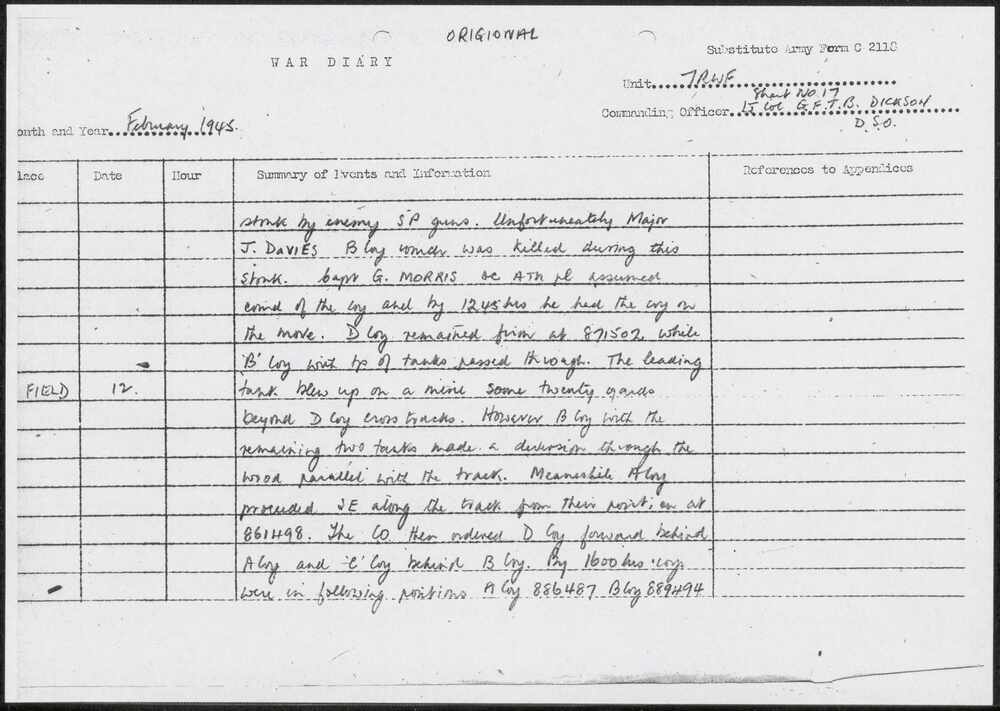 ORIGIONAL
WAR DIARY
Substitute Army Form C 2118
Unit 7RWF
Sheet No 17
Commanding Officer Lt Col G.F.T.B. DICKSON
D.S.O.
onth and Year February 1945.
lace Date Hour Summary of Events and Information References to Appendices
stonk by enemy SP guns. Unfortuneately Major
J. DAVIES B Coy comdr was killed during this
stonk. Capt G. MORRIS OC ATk pl assumed
comd of the coy and by 1245 hrs he had the coy on
the move. D Coy remained firm at 871502 while
'B' Coy with tp of tanks passed through. The leading
FIELD 12. tank blew up on a mine some twenty yards
beyond D Coy cross tracks. However B Coy with the
remaining two tanks made a diversion through the
wood parallel with the track. Meanwhile A Coy
proceeded SE along the track from their position at
861498. The CO then ordered D Coy forward behind
A Coy and 'C' Coy behind B Coy. By 1600 hrs coys
were in following positions A Coy 886487 B Coy 889494